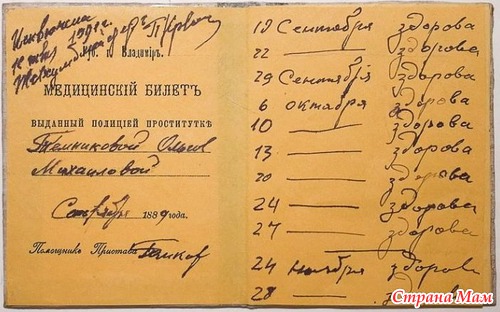 10 1891 г.
Губ. г. Владиміръ.
МЕДИЦИНСКІЙ БИЛЕТЪ
ВЫДАННЫЙ ПОЛИЦІЕЙ ПРОСТИТУТКѢ
Темниковой Ольгѣ
Михаиловой
Сентября 1889 года.
Помощникъ Пристава
19 Сентября здорова
22 — здорова
29 Сентября здорова
6 октября здорова
10 — здорова
13 — здорова
20 — здорова
24 — здорова
27 — здорова
24 ноября здорова
28 — здорова
Страна Мам